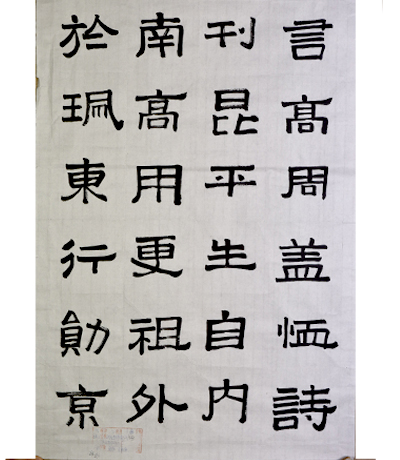 言高周盖恤詩
刊昆平生自内
南高用更祖外
於珮東行勛京